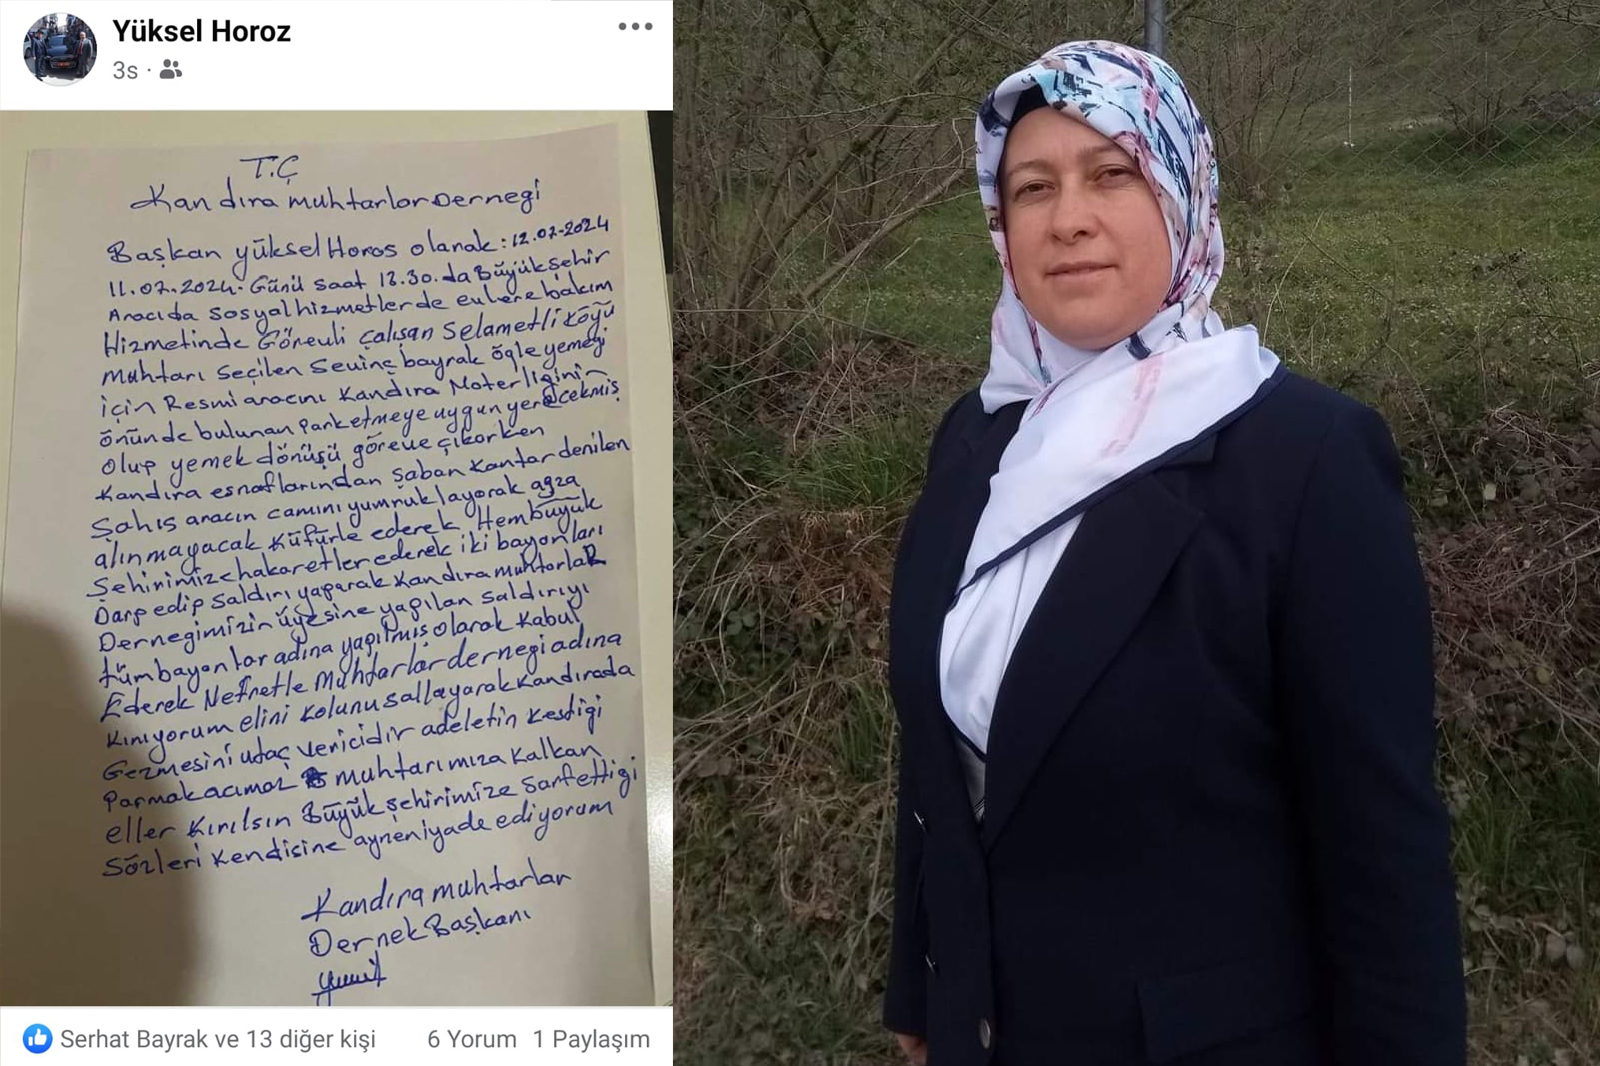 Yüksel Horoz
3s ·
T.Ç
Kandıra muhtarlar Dernegi
Başkan yüksel Horos olanak: 12.07-2024
11.07.2024. Günü saat 12.30.da Büyükşehir
Aracıda sosyal hizmetlerde evlere bakım
Hizmetinde Görevli çalışan Selametli köyü
muhtarı seçilen Sevinç bayrak öğle yemeği
için Resmi aracını Kandıra Noterliginin
önünde bulunan park etmeye uygun yere çekmiş
olup yemek dönüşü göreve çıkarken
Kandıra esnaflarından Şaban Kantar denilen
Şahıs aracın camını yumruklayarak agza
alınmayacak küfürle ederek Hem büyük
Şehirimize hakaretler ederek iki bayanları
Darp edip saldırı yaparak Kandıra muhtarlar
Dernegimizin üyesine yapılan saldırıyı
tüm bayanlar adına yapılmış olarak Kabul
Ederek Nefretle Muhtarlar dernegi adına
kınıyorum elini kolunu sallayarak Kandırada
Gezmesini utaç vericidir adeletin kestigi
Parmak acımaz muhtarımıza kalkan
eller kırılsın Büyük şehirimize sarfettigi
Sözleri kendisine ayneniyade ediyorum
Kandıra muhtarlar
Dernek Başkanı
Serhat Bayrak ve 13 diğer kişi 6 Yorum 1 Paylaşım